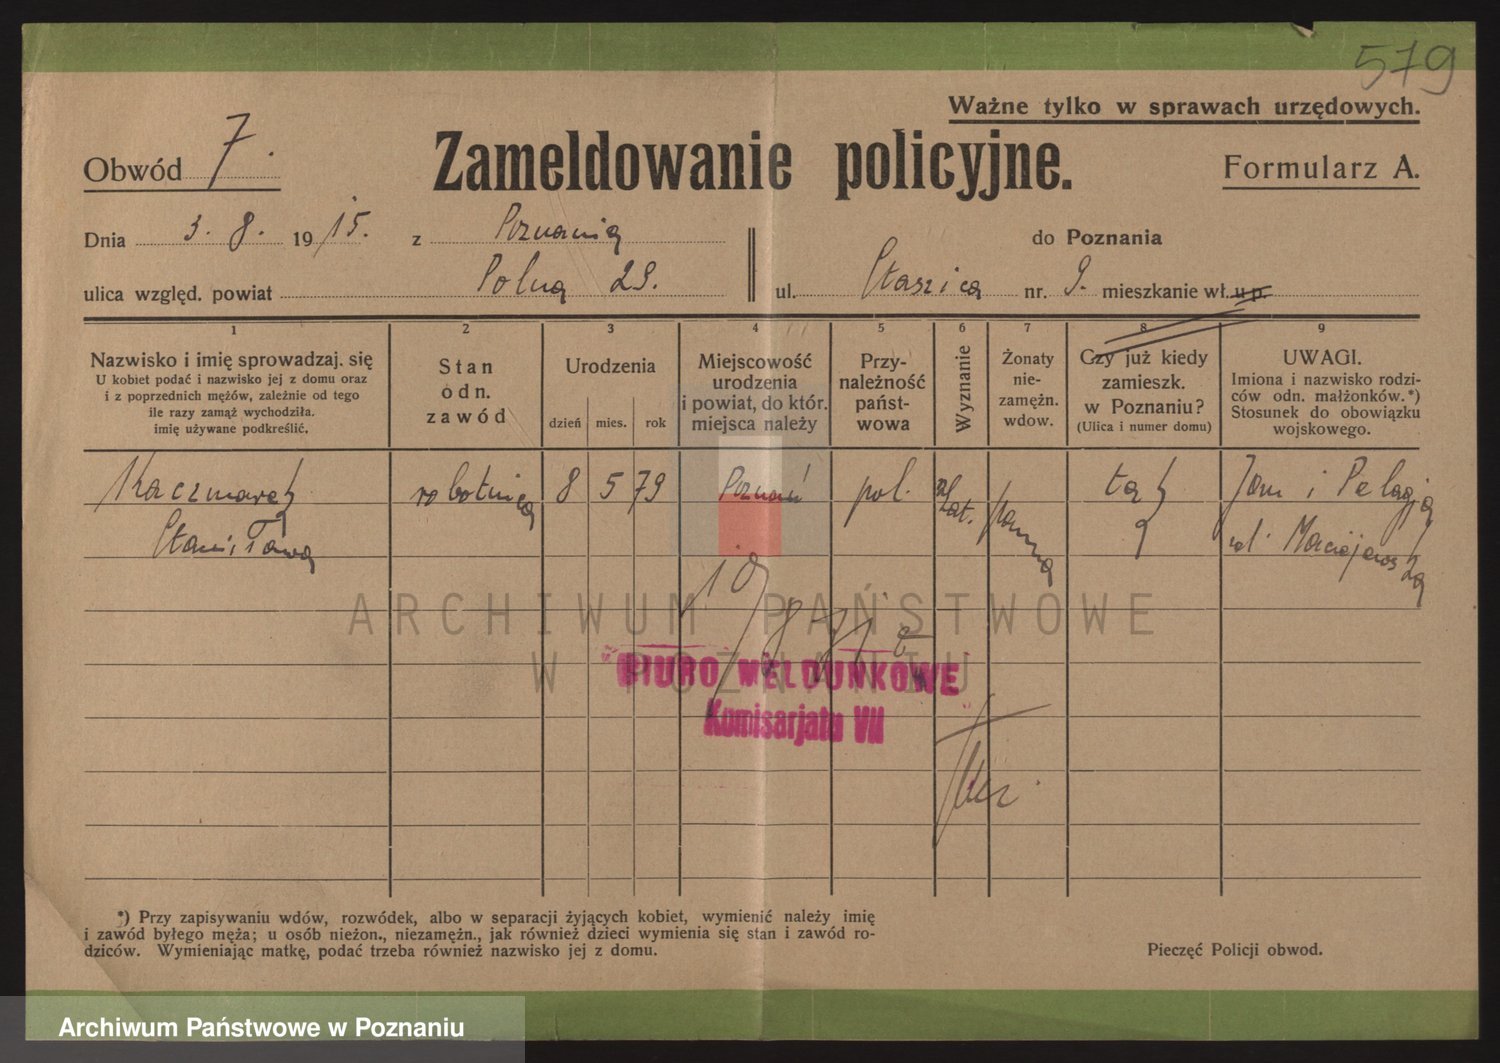 579
Ważne tylko w sprawach urzędowych.
Obwód 7.
Zameldowanie policyjne.
Formularz A.
Dnia 3. 8. 1915. z Poznania do Poznania
ulica względ. powiat Polna 29. ul. Staszica nr. 9. mieszkanie wł. u p.
1 2 3 4 5 6 7 8 9
Nazwisko i imię sprowadzaj. się
U kobiet podać i nazwisko jej z domu oraz
i z poprzednich mężów, zależnie od tego
ile razy zamąż wychodziła.
imię używane podkreślić.
Stan
odn.
zawód
Urodzenia
dzień mies. rok
Miejscowość
urodzenia
i powiat, do któr.
miejsca należy
Przy-
należność
państ-
wowa
Wyznanie
Żonaty
nie-
zamężn.
wdow.
Czy już kiedy
zamieszk.
w Poznaniu?
(Ulica i numer domu)
UWAGI.
Imiona i nazwisko rodzi-
ców odn. małżonków.*)
Stosunek do obowiązku
wojskowego.
Kaczmarek robotnica 8 5 79 Poznań pol. kat. panna tak Jan i Pelagja
Stanisława
ARCHIWUM PAŃSTWOWE
W POZNANIU
BIURO MELDUNKOWE
Komisarjatu VII
*) Przy zapisywaniu wdów, rozwódek, albo w separacji żyjących kobiet, wymienić należy imię
i zawód byłego męża; u osób nieżon., niezamężn., jak również dzieci wymienia się stan i zawód ro-
dziców. Wymieniając matkę, podać trzeba również nazwisko jej z domu.
Pieczęć Policji obwod.
Archiwum Państwowe w Poznaniu